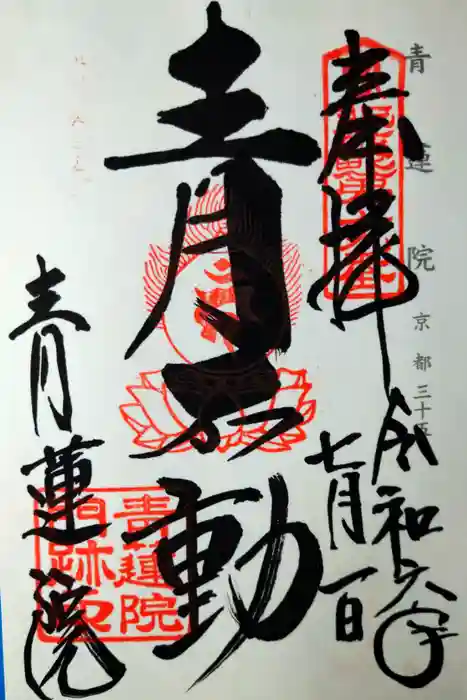 青蓮院
京都三十五
奉拝
令和六年
七月一日
青不動
青蓮院
青蓮院
門跡印